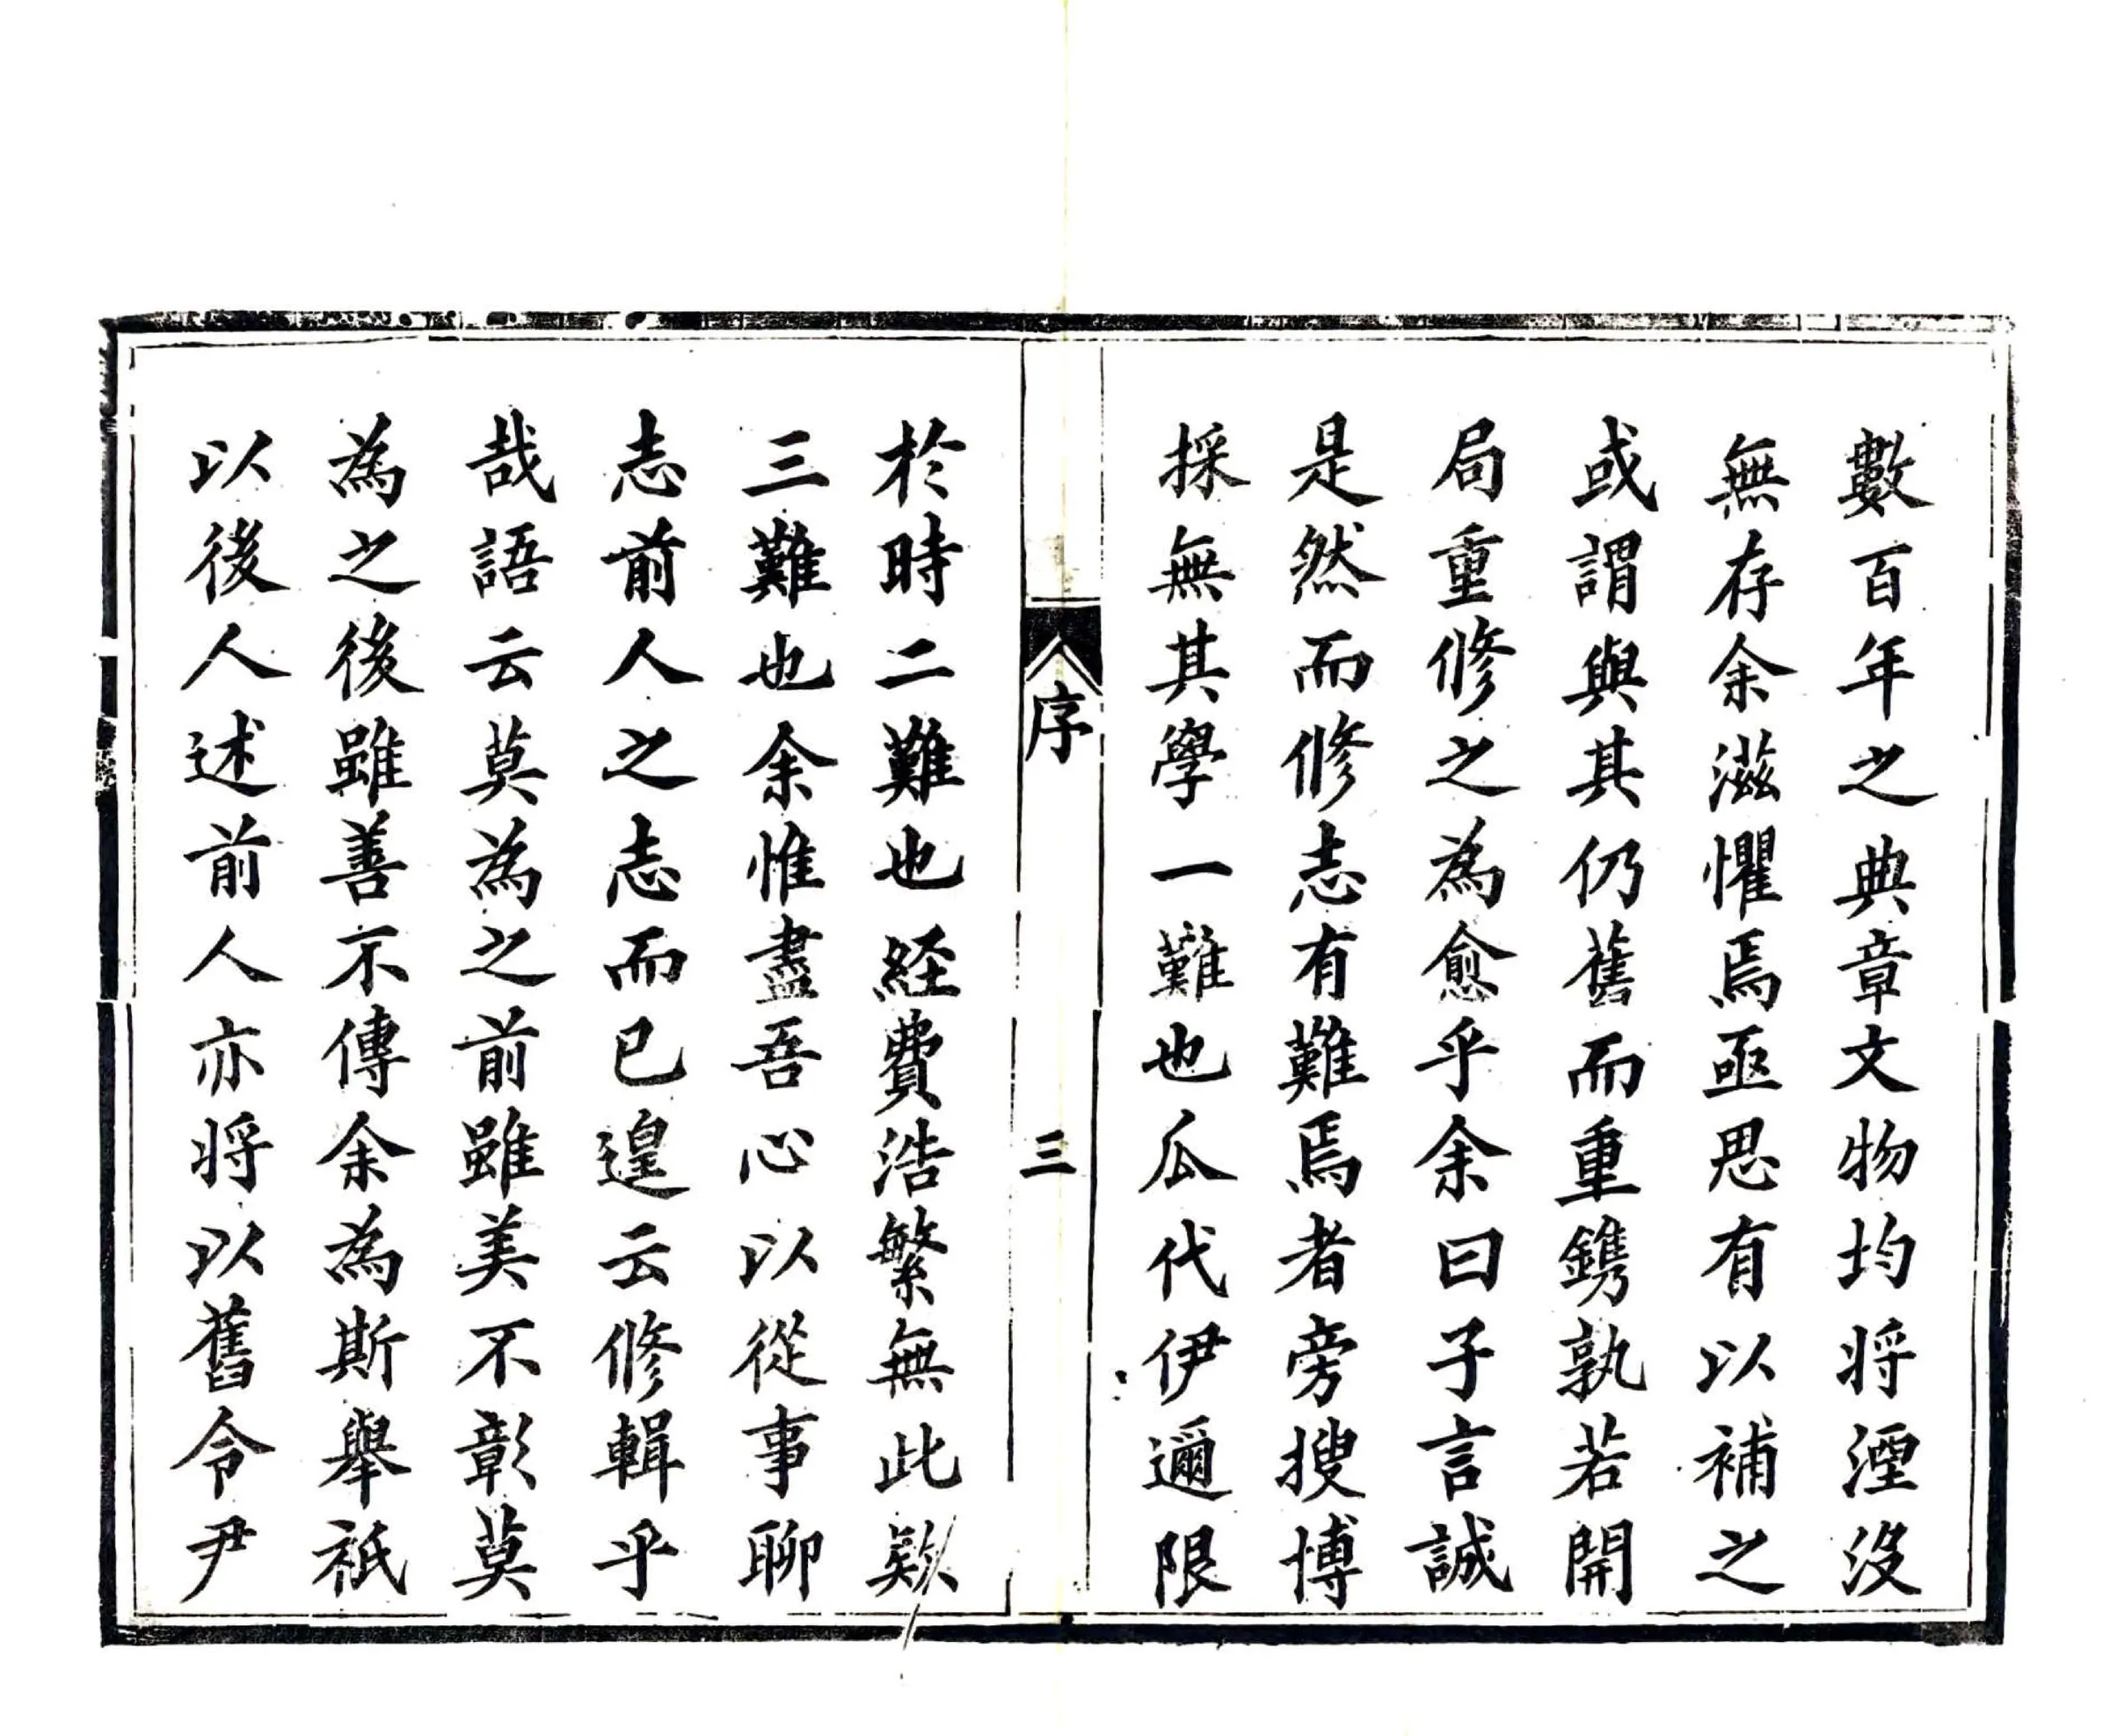 數百年之典章文物均将湮没
無存余滋懼焉亟思有以補之
或謂與其仍舊而重鐫孰若開
局重修之為愈乎余曰子言誠
是然而修志有難焉者旁搜博
採無其學一難也瓜代伊邇限
序
三
於時二難也経費浩繁無此欵
三難也余惟盡吾心以從事聊
志前人之志而已遑云修輯乎
哉語云莫為之前雖美不彰莫
為之後雖善不傳余為斯舉祇
以後人述前人亦将以舊令尹